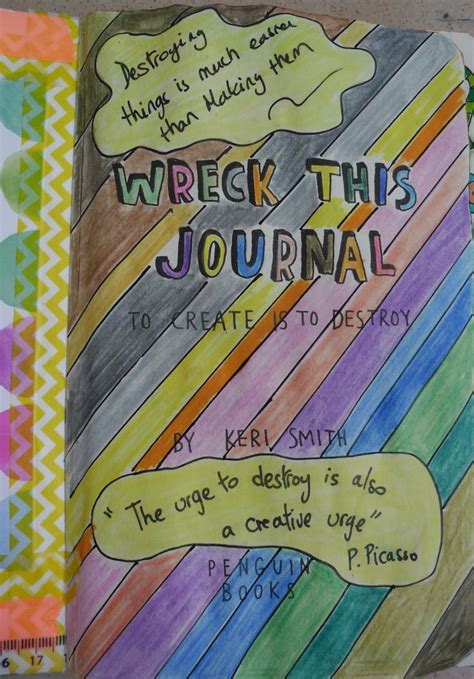 Destroying
things is much easier
than Making them
WRECK THIS
JOURNAL
TO CREATE IS TO DESTROY
BY KERI SMITH
"The urge to destroy is also
a creative urge"
P. Picasso
PENGUIN
BOOKS
6 17